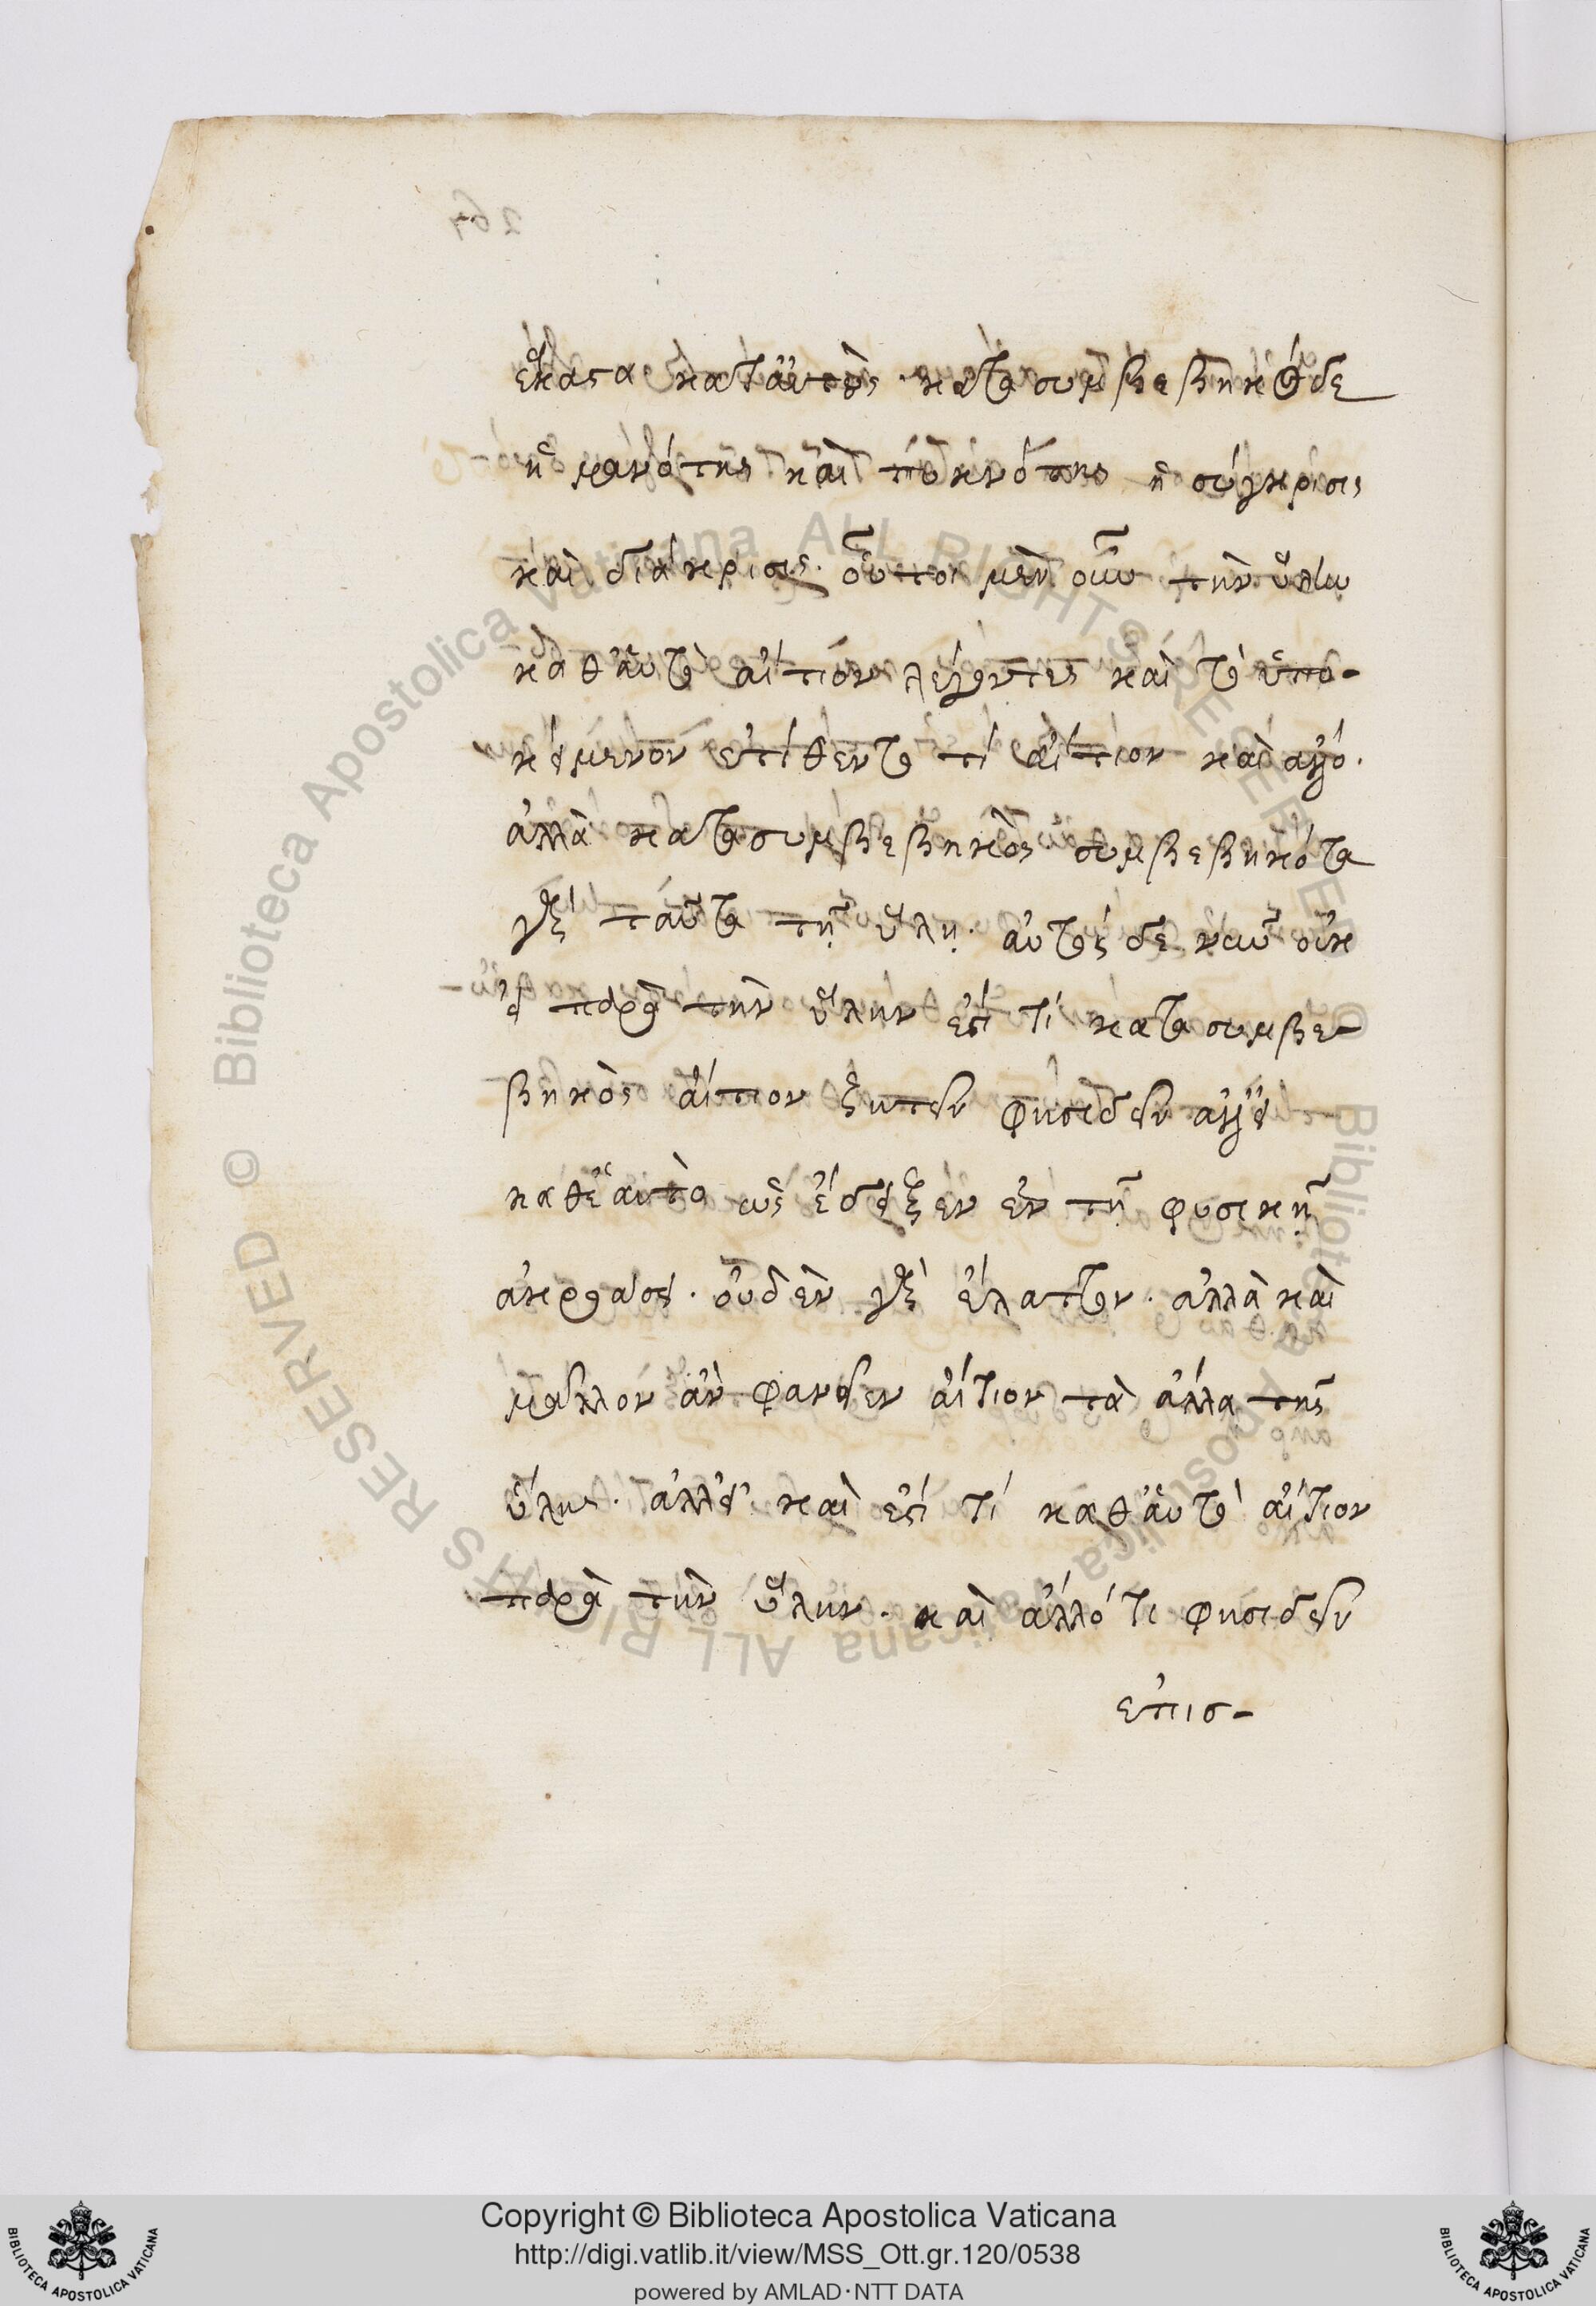 ἕκαστα κατ' αὐτοὺς. κατα συμβεβηκὸς δε
ἡ μανότης καὶ πυκνότης ἢ σύγκρισις
καὶ διάκρισις. οὗτοι μὲν οὖν τὴν ὕλην
καθ' αὑτὸ αἴτιον λέγοντες καὶ τὸ ὑπο-
κείμενον ἐτίθεντο τὶ αἴτιον καὶ ἄλλο.
ἀλλὰ κατα συμβεβηκὸς συμβεβηκότα
γὰρ ταῦτα τῇ ὕλῃ. αὐτὸς δε νῦν οὐκ
εἰ παρὰ τὴν ὕλην ἐστί τι κατα συμβε-
βηκὸς αἴτιον ζητεῖν φησὶ δεῖν ἀλλ' εἰ
καθ' ἑαυτὸ ὡς ἔδειξεν ἐν τῇ φυσικῇ
ἀκροάσει. οὐδὲν γὰρ ἔλαττον. ἀλλὰ καὶ
μᾶλλον ἂν φανείεν αἴτιον τὰ ἄλλα τῆς
ὕλης. ἀλλ' εἰ καὶ ἐστί τι καθ' αὑτὸ αἴτιον
παρὰ τὴν ὕλην. καὶ ἄλλό τι φησὶ δεῖν
ἐπισ-
264
Copyright © Biblioteca Apostolica Vaticana
http://digi.vatlib.it/view/MSS_Ott.gr.120/0538
powered by AMLAD · NTT DATA
BIBLIOTECA APOSTOLICA VATICANA
BIBLIOTECA APOSTOLICA VATICANA
© Biblioteca Apostolica Vaticana ALL RIGHTS RESERVED
© Biblioteca Apostolica Vaticana ALL RIGHTS RESERVED